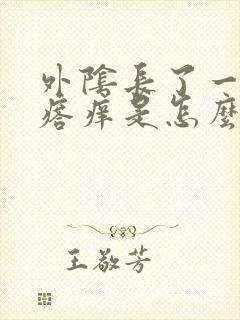 外陰長了一
瘩痒是怎麼
王敬芳